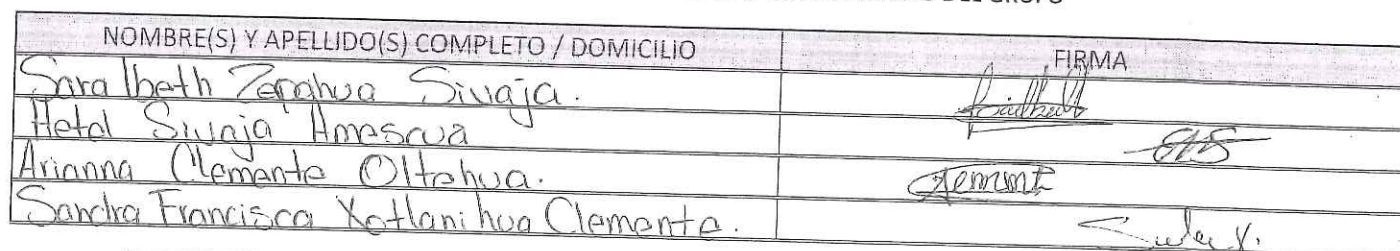 DEL GRUPO
NOMBRE(S) Y APELLIDO(S) COMPLETO / DOMICILIO FIRMA
Sara Ibeth Zepahua Sivaja.
Hetal Sivaja Amescua
Arianna Clemente Oltehua.
Sandra Francisca Xotlanihua Clemente.